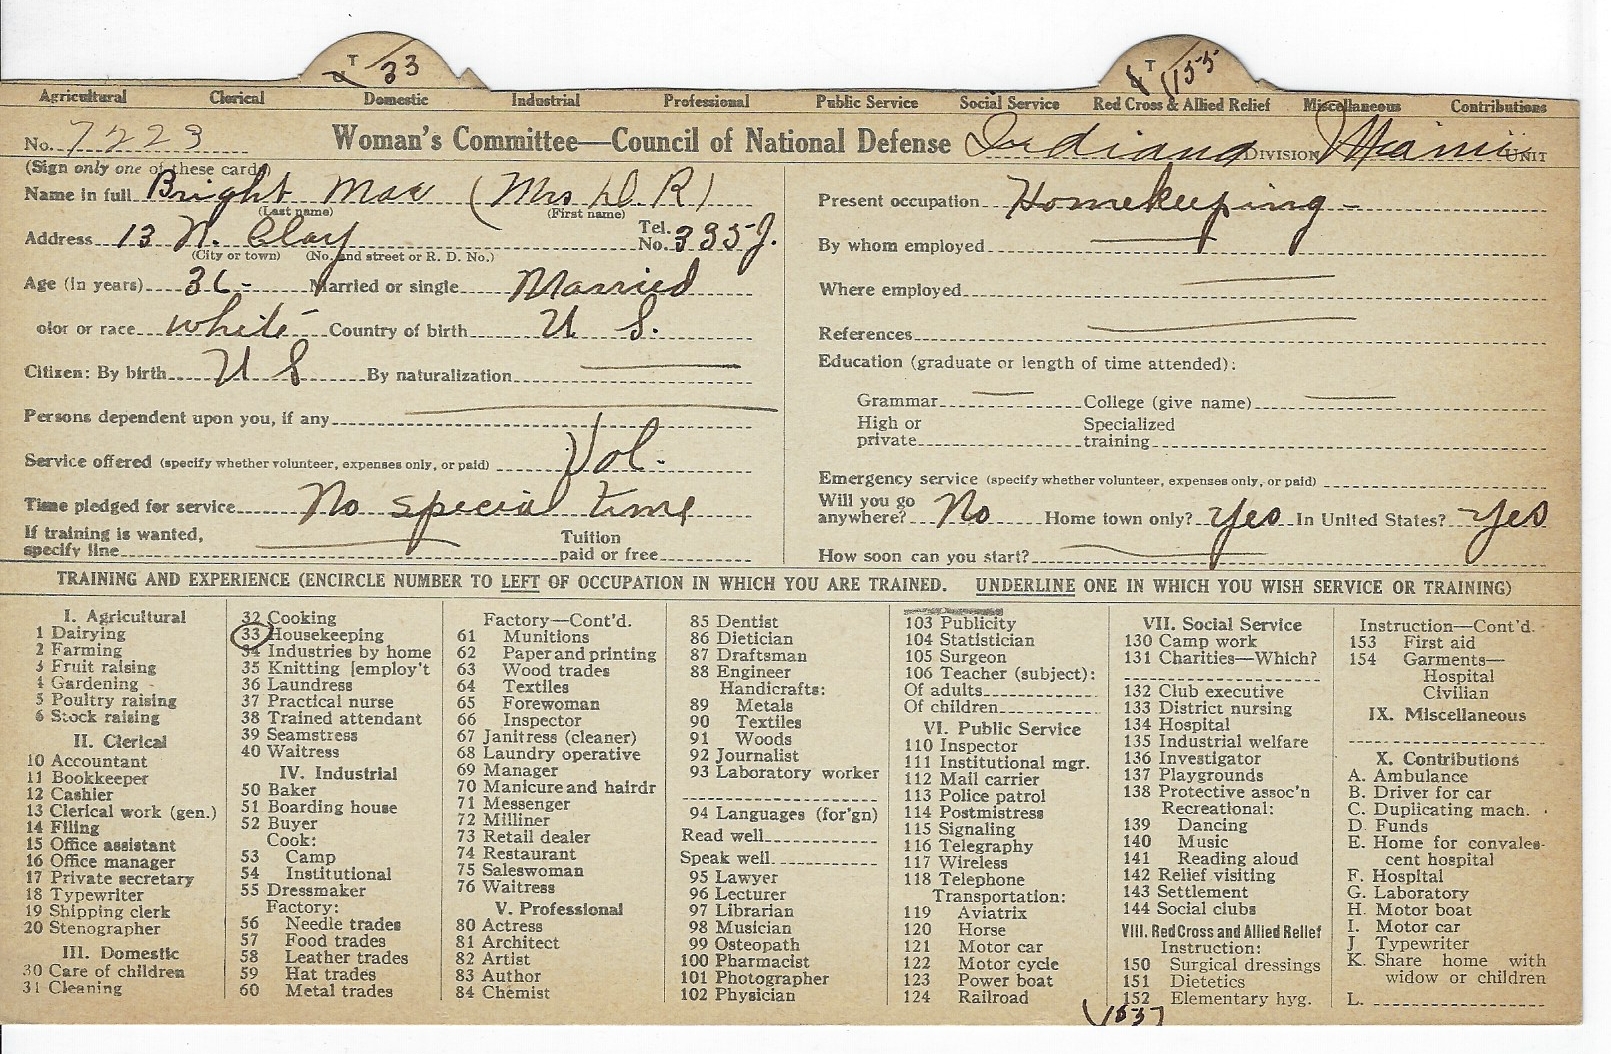 T 33
T 155
Agricultural Clerical Domestic Industrial Professional Public Service Social Service Red Cross & Allied Relief Miscellaneous Contributions
No. 7223 Woman's Committee—Council of National Defense Indiana DIVISION Miami UNIT
(Sign only one of these cards)
Name in full Bright Mae (Mrs D. R)
(Last name) (First name)
Address 13 N. Clay Tel. No. 335 J.
(City or town) (No. and street or R. D. No.)
Age (in years) 36- Married or single Married
olor or race white Country of birth U S.
Citizen: By birth U S By naturalization
Persons dependent upon you, if any
Service offered (specify whether volunteer, expenses only, or paid) Vol.
Time pledged for service No special time
If training is wanted,
specify line Tuition paid or free
Present occupation Homekeeping -
By whom employed
Where employed
References
Education (graduate or length of time attended):
Grammar College (give name)
High or private Specialized training
Emergency service (specify whether volunteer, expenses only, or paid)
Will you go anywhere? No Home town only? Yes In United States? Yes
How soon can you start?
TRAINING AND EXPERIENCE (ENCIRCLE NUMBER TO LEFT OF OCCUPATION IN WHICH YOU ARE TRAINED. UNDERLINE ONE IN WHICH YOU WISH SERVICE OR TRAINING)
I. Agricultural
1 Dairying
2 Farming
3 Fruit raising
4 Gardening
5 Poultry raising
6 Stock raising
II. Clerical
10 Accountant
11 Bookkeeper
12 Cashier
13 Clerical work (gen.)
14 Filing
15 Office assistant
16 Office manager
17 Private secretary
18 Typewriter
19 Shipping clerk
20 Stenographer
III. Domestic
30 Care of children
31 Cleaning
32 Cooking
33 Housekeeping
34 Industries by home
35 Knitting [employ't
36 Laundress
37 Practical nurse
38 Trained attendant
39 Seamstress
40 Waitress
IV. Industrial
50 Baker
51 Boarding house
52 Buyer
Cook:
53 Camp
54 Institutional
55 Dressmaker
Factory:
56 Needle trades
57 Food trades
58 Leather trades
59 Hat trades
60 Metal trades
Factory—Cont'd.
61 Munitions
62 Paper and printing
63 Wood trades
64 Textiles
65 Forewoman
66 Inspector
67 Janitress (cleaner)
68 Laundry operative
69 Manager
70 Manicure and hairdr
71 Messenger
72 Milliner
73 Retail dealer
74 Restaurant
75 Saleswoman
76 Waitress
V. Professional
80 Actress
81 Architect
82 Artist
83 Author
84 Chemist
85 Dentist
86 Dietician
87 Draftsman
88 Engineer
Handicrafts:
89 Metals
90 Textiles
91 Woods
92 Journalist
93 Laboratory worker
94 Languages (for'gn)
Read well
Speak well
95 Lawyer
96 Lecturer
97 Librarian
98 Musician
99 Osteopath
100 Pharmacist
101 Photographer
102 Physician
103 Publicity
104 Statistician
105 Surgeon
106 Teacher (subject):
Of adults
Of children
VI. Public Service
110 Inspector
111 Institutional mgr.
112 Mail carrier
113 Police patrol
114 Postmistress
115 Signaling
116 Telegraphy
117 Wireless
118 Telephone
Transportation:
119 Aviatrix
120 Horse
121 Motor car
122 Motor cycle
123 Power boat
124 Railroad
VII. Social Service
130 Camp work
131 Charities—Which?
132 Club executive
133 District nursing
134 Hospital
135 Industrial welfare
136 Investigator
137 Playgrounds
138 Protective assoc'n
Recreational:
139 Dancing
140 Music
141 Reading aloud
142 Relief visiting
143 Settlement
144 Social clubs
VIII. Red Cross and Allied Relief
Instruction:
150 Surgical dressings
151 Dietetics
152 Elementary hyg.
(155)
Instruction—Cont'd.
153 First aid
154 Garments—
Hospital
Civilian
IX. Miscellaneous
X. Contributions
A. Ambulance
B. Driver for car
C. Duplicating mach.
D. Funds
E. Home for convales-
cent hospital
F. Hospital
G. Laboratory
H. Motor boat
I. Motor car
J. Typewriter
K. Share home with
widow or children
L.